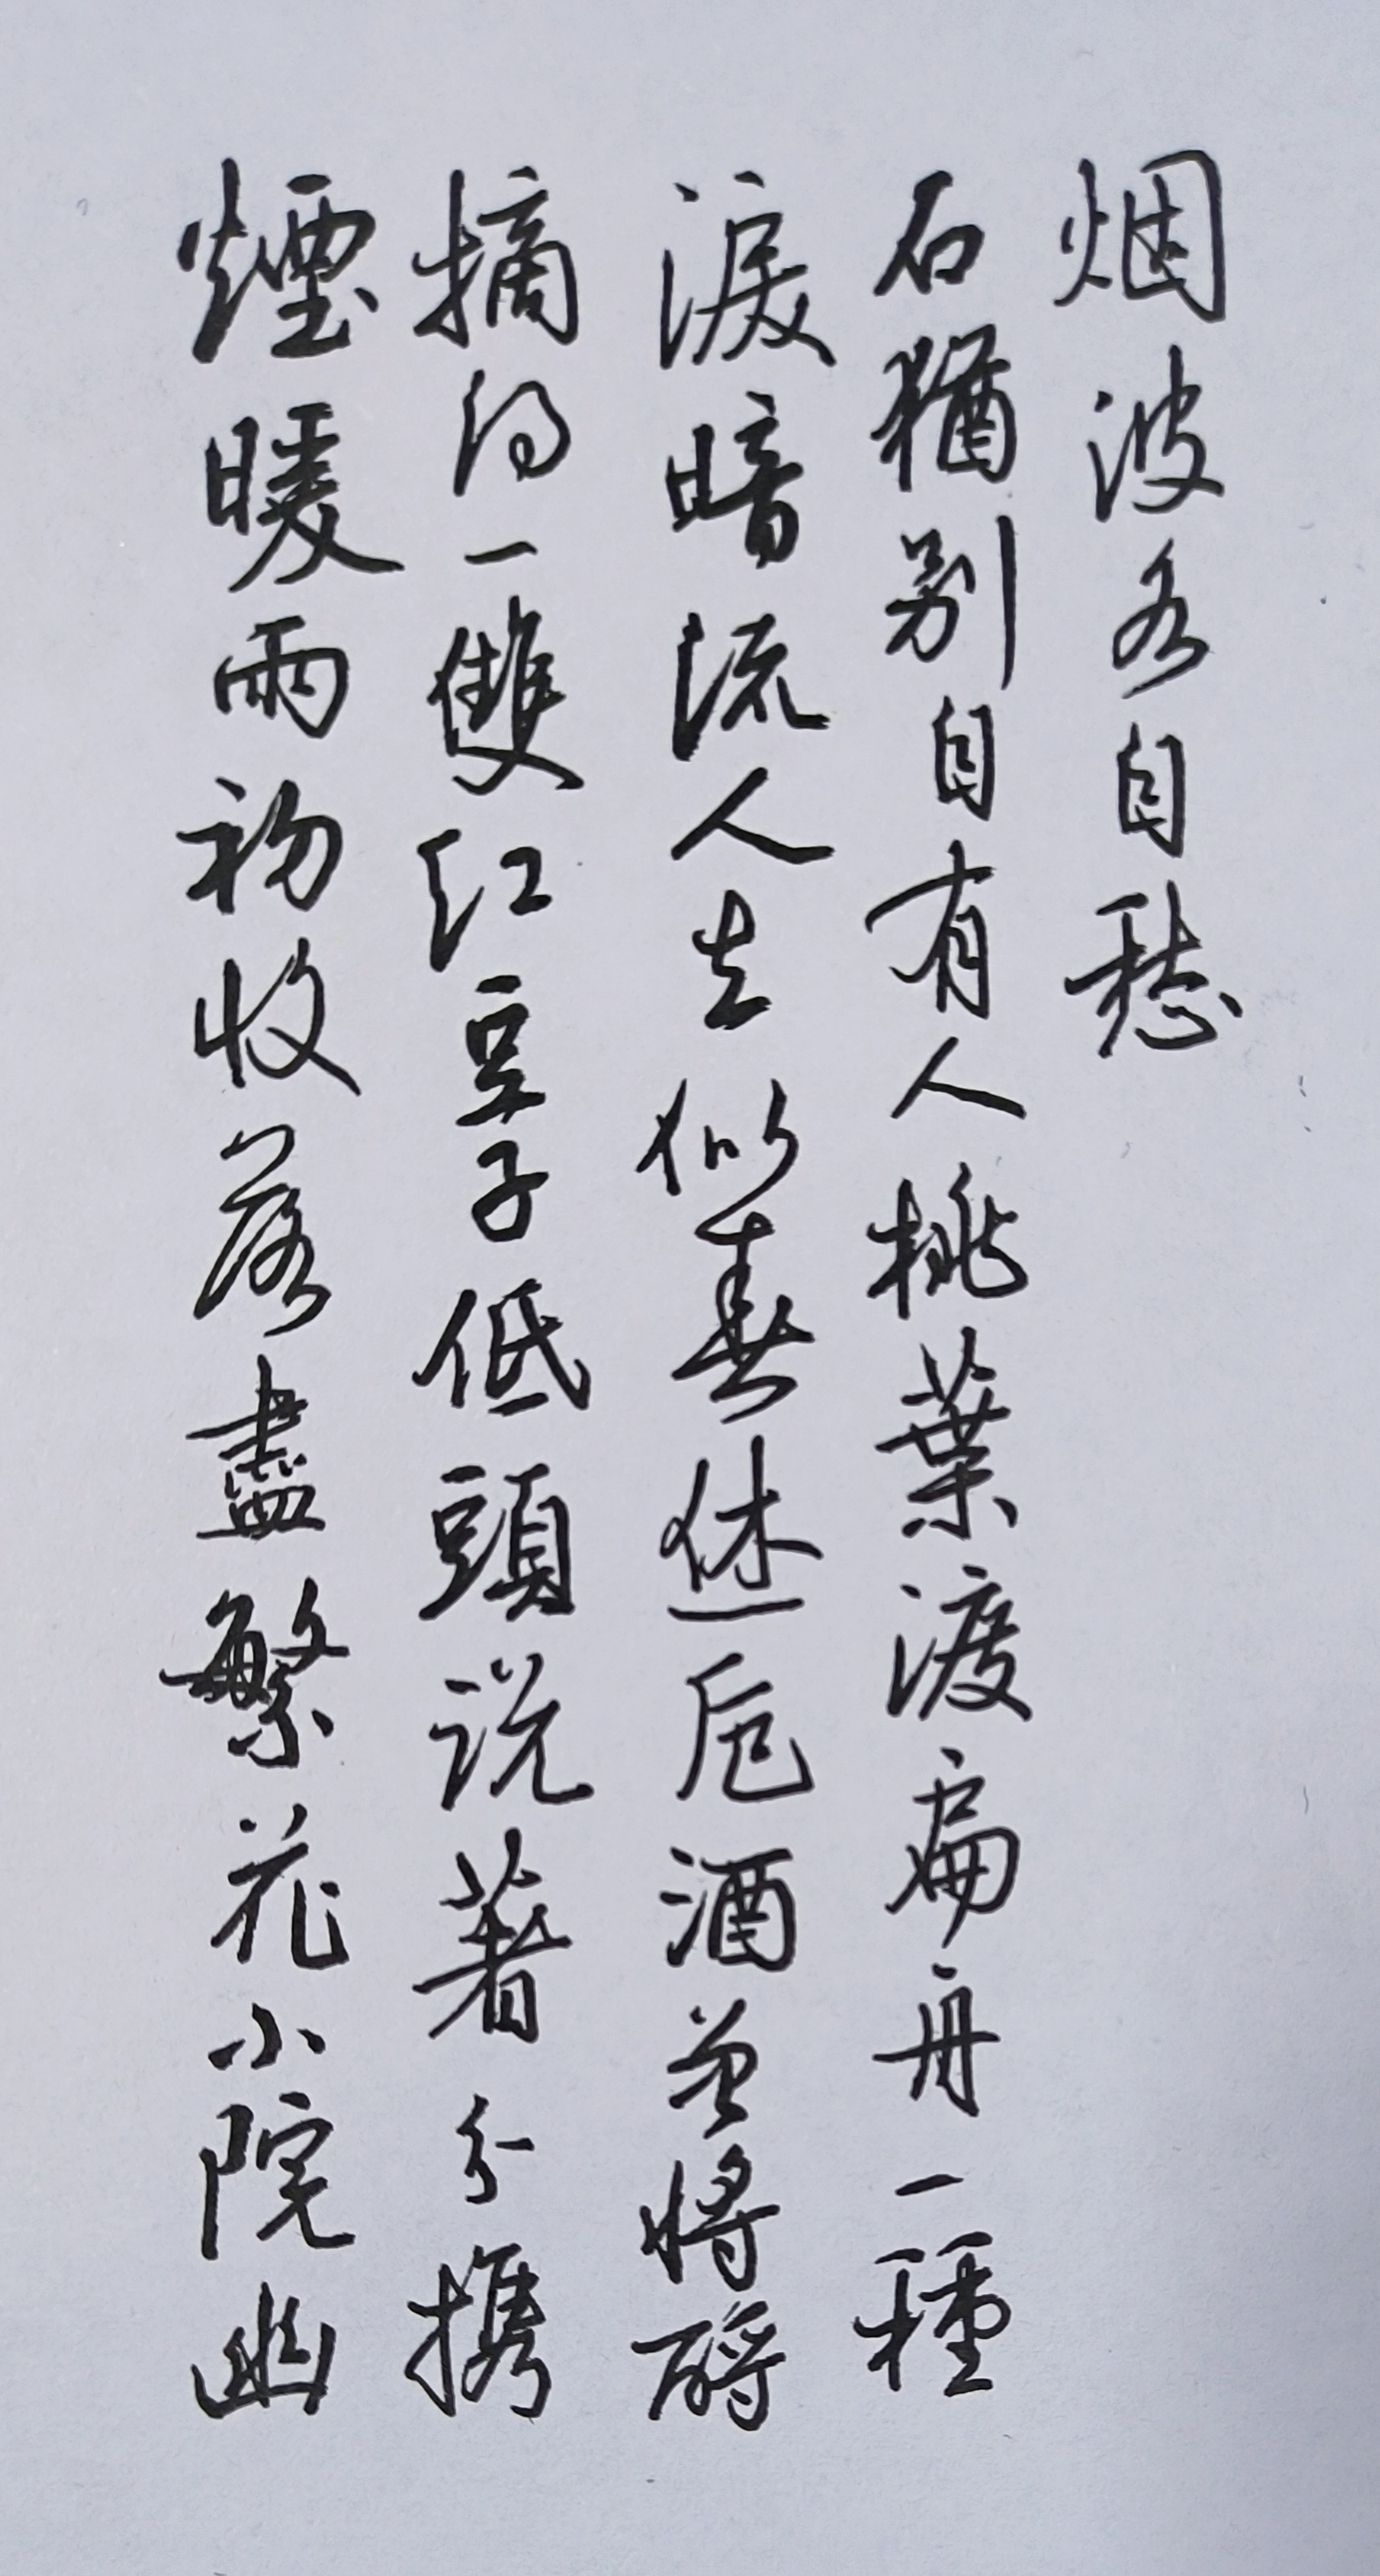 煙暖雨初收落盡繁花小院幽
摘得一雙红豆子低頭说著分携
淚暗流人去似春休卮酒曾將酹
石猶别自有人桃葉渡扁舟一種
烟波各自愁